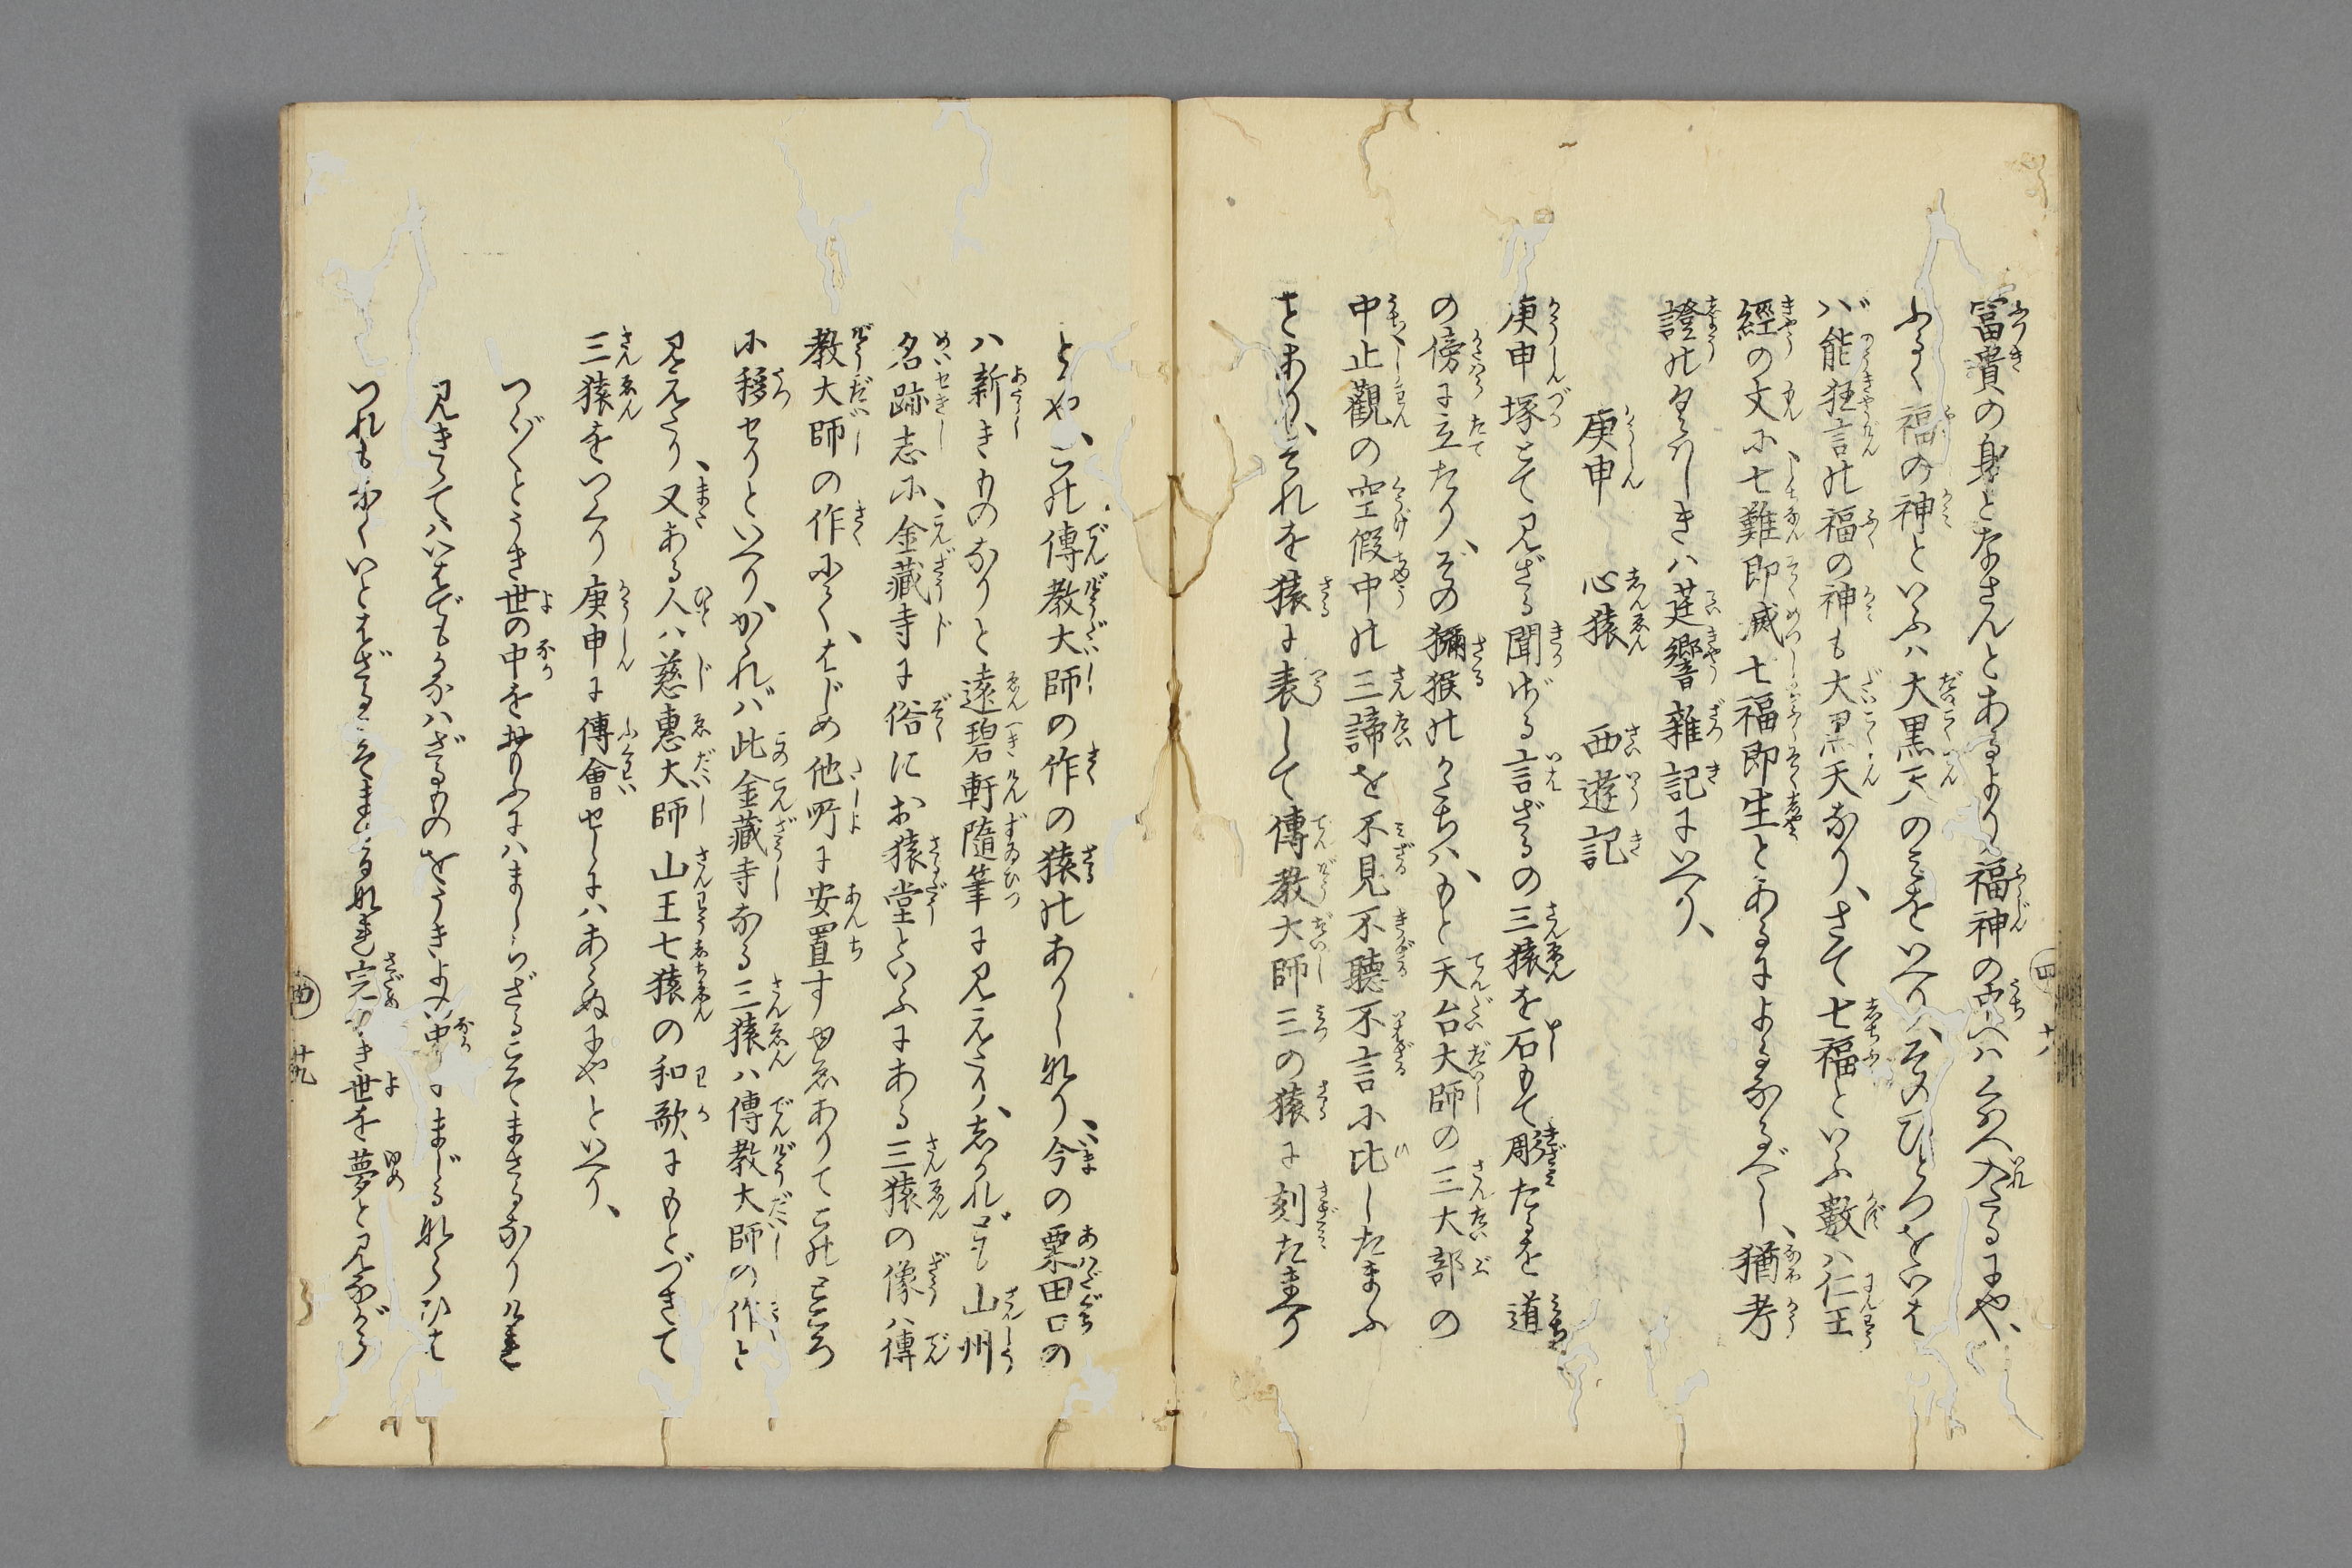 富貴の身となさんとあるより福神の内へハくはへ入たるにや、
ふるく福の神といふハ大黒天のミをいへり、そのひとつをいは
バ能狂言の福の神も大黒天なり、さて七福といふ數ハ仁王
經の文に七難即滅七福即生とあるによるなるべし、猶考
證のくハしきハ莛響雜記にいへり、
庚申　心猿　西遊記
庚申塚とて見ざる聞ざる言ざるの三猿を石もて彫たるを道
の傍に立たり、その獼猴のかたちハ、もと天台大師の三大部の
中止觀の空假中の三諦を不見不聽不言に比したまふ
とあり、それを猿に表して傳教大師三の猿に刻たまへり
とぞや、この傳教大師の作の猿のありしなり、今の粟田口の
ハ新きものなりと遠碧軒隨筆に見えたり、志かれども山州
名跡志に、金藏寺に俗にお猿堂といふにある三猿の像ハ傳
教大師の作にて、はじめ他所に安置すゆゑありてこのところ
に移セりといへり、かゝれバ此金藏寺なる三猿ハ傳教大師の作と
見えたり、又ある人ハ慈惠大師山王七猿の和歌にもとづきて
三猿をいへり庚申に傳會せしにハあらぬにやといへり、
つら〳〵とうき世の中をおもふにハまじらざるこそまさるなりけれ
見きゝていはでもかなハざるものをうきよの中にまじるならひは
つれもなくいとはざるこそまさるなれ定なき世を夢と見ながら
四　十八
四　廿九